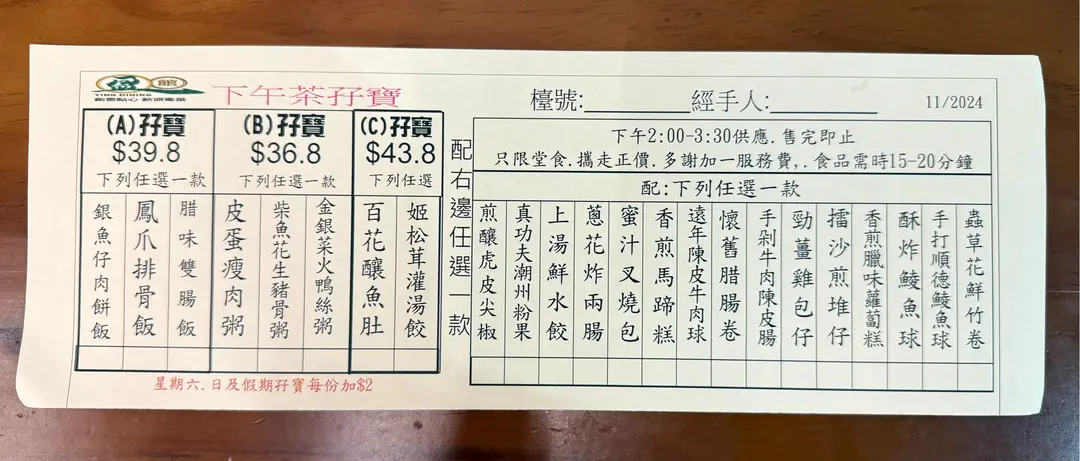 盈 館
YING DINING
創意點心 新派粵菜
下午茶孖寶
檯號:________ 經手人:________
11/2024
(A)孖寶
$39.8
下列任選一款
銀魚仔肉餅飯
鳳爪排骨飯
腊味雙腸飯
(B)孖寶
$36.8
下列任選一款
皮蛋瘦肉粥
柴魚花生豬骨粥
金銀菜火鴨絲粥
(C)孖寶
$43.8
下列任選
百花釀魚肚
姬松茸灌湯餃
配右邊任選一款
下午2:00-3:30供應.售完即止
只限堂食.攜走正價.多謝加一服務費,.食品需時15-20分鐘
配:下列任選一款
煎釀虎皮尖椒
真功夫潮州粉果
上湯鮮水餃
蔥花炸兩腸
蜜汁叉燒包
香煎馬蹄糕
遠年陳皮牛肉球
懷舊腊腸卷
手剁牛肉陳皮腸
勁薑雞包仔
擂沙煎堆仔
香煎臘味蘿蔔糕
酥炸鯪魚球
手打順德鯪魚球
蟲草花鮮竹卷
星期六.日及假期孖寶每份加$2